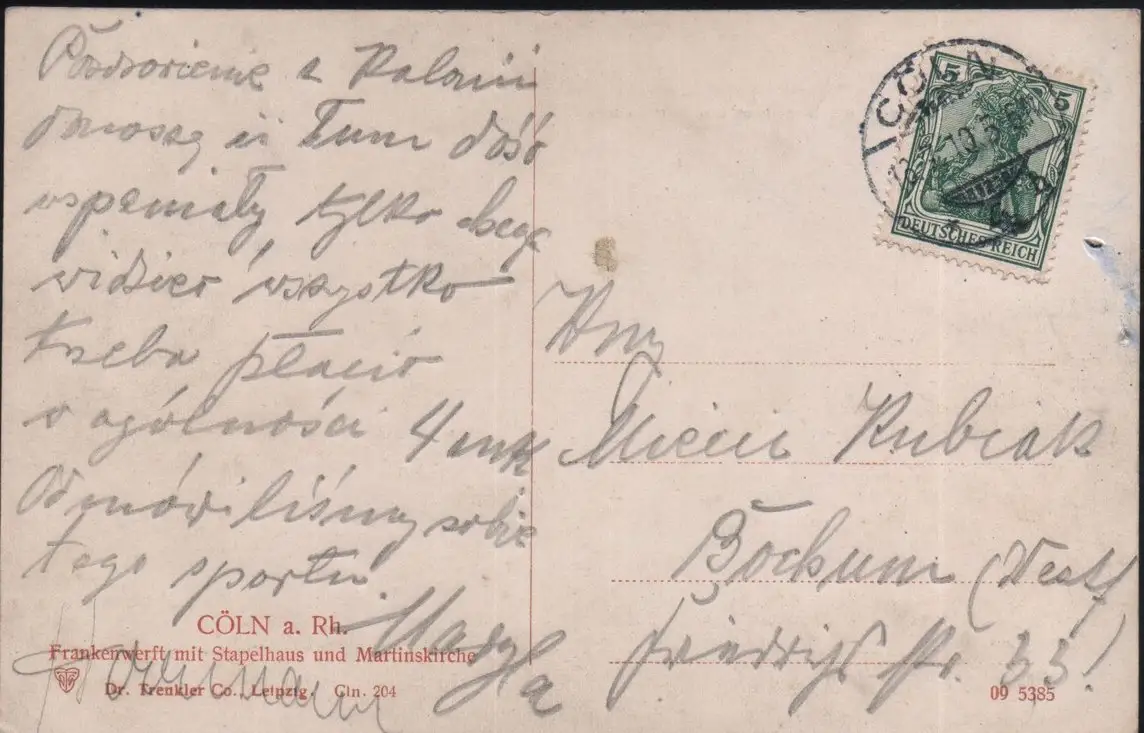 Pozdrowienie z Kolonii
donoszę ii Tum dość
wspaniały, tylko chcąc
widzieć wszystko
trzeba płacić
w ogólności 4 mk
Odmówiliśmy sobie
tego sportu
Magda
CÖLN
5 5
DEUTSCHES REICH
Kubiak
Bochum (Westf
Friedrichstr. 33!
CÖLN a. Rh.
Frankenwerft mit Stapelhaus und Martinskirche
Dr. Trenkler Co., Leipzig. Cln. 204
09 5385